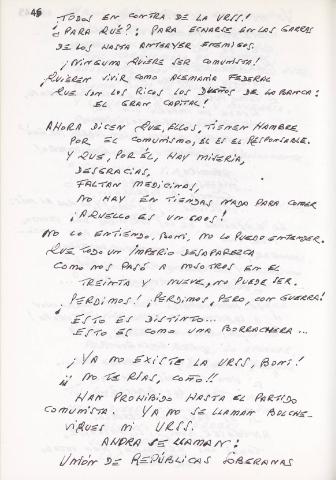 46
TODOS EN CONTRA DE LA URSS!
¿PARA QUÉ?: PARA ECHARSE EN LAS GARRAS
DE LOS HASTA ANTEAYER ENEMIGOS.
¡NINGUNA QUIERE SER COMUNISTA!
¡QUIEREN VIVIR COMO ALEMANIA FEDERAL
QUE SON LOS RICOS LOS DUEÑOS DE LA BANCA:
EL GRAN CAPITAL!
AHORA DICEN QUE, ELLOS, TIENEN HAMBRE
POR EL COMUNISMO, ÉL ES EL RESPONSABLE.
Y QUE, POR ÉL, HAY MISERIA,
DESGRACIAS,
FALTAN MEDICINAS,
NO HAY EN TIENDAS NADA PARA COMER
¡AQUELLO ES UN CAOS!
NO LO ENTIENDO, BONI, NO LO PUEDO ENTENDER.
QUE TODO UN IMPERIO DESAPAREZCA
COMO NOS PASÓ A NOSOTROS EN EL
TREINTA Y NUEVE, NO PUEDE SER.
¡PERDIMOS! ¡PERDIMOS, PERO, CON GUERRA!
ESTO ES DISTINTO...
ESTO ES COMO UNA BORRACHERA...
¡YA NO EXISTE LA URSS, BONI!
¡¡NO TE RÍAS, COÑO!!
HAN PROHIBIDO HASTA EL PARTIDO
COMUNISTA. YA NO SE LLAMAN BOLCHE-
VIQUES NI URSS.
AHORA SE LLAMAN:
UNIÓN DE REPÚBLICAS SOBERANAS